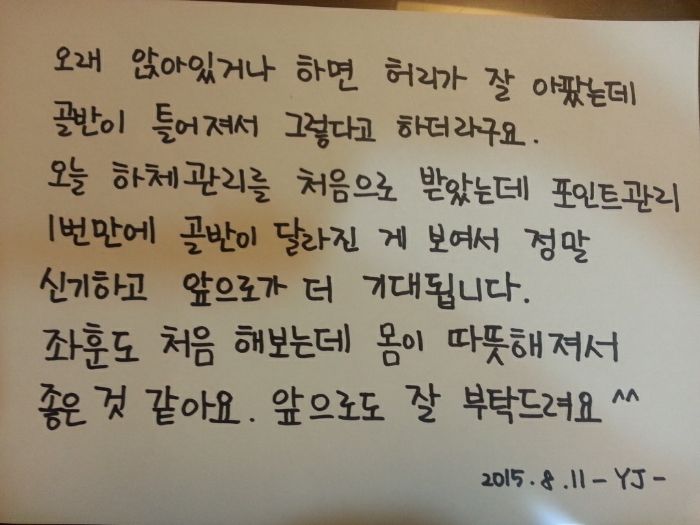 오래 앉아있거나 하면 허리가 잘 아팠는데
골반이 틀어져서 그렇다고 하더라구요.
오늘 하체관리를 처음으로 받았는데 포인트관리
1번만에 골반이 달라진 게 보여서 정말
신기하고 앞으로가 더 기대됩니다.
좌훈도 처음 해보는데 몸이 따뜻해져서
좋은 것 같아요. 앞으로도 잘 부탁드려요^^
2015.8.11-YJ-